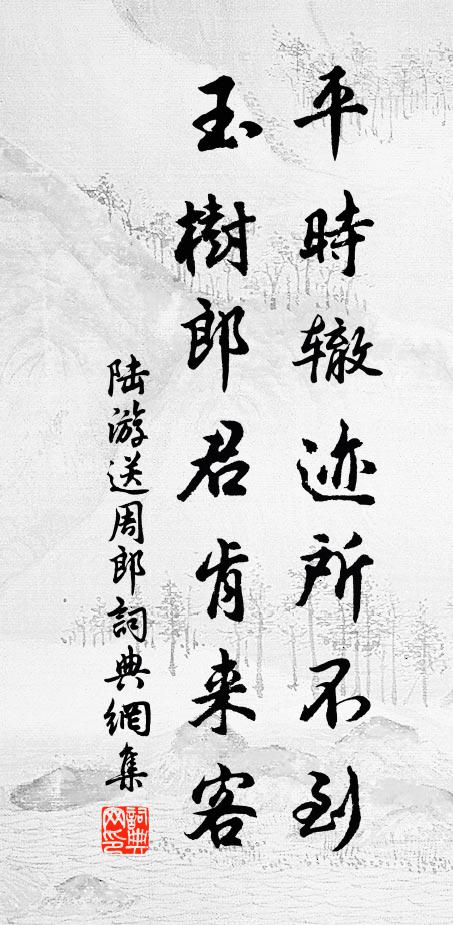 平時辙迹所不到
玉樹郎君肯来客
陆游送周郎詞典網集
詞典网印